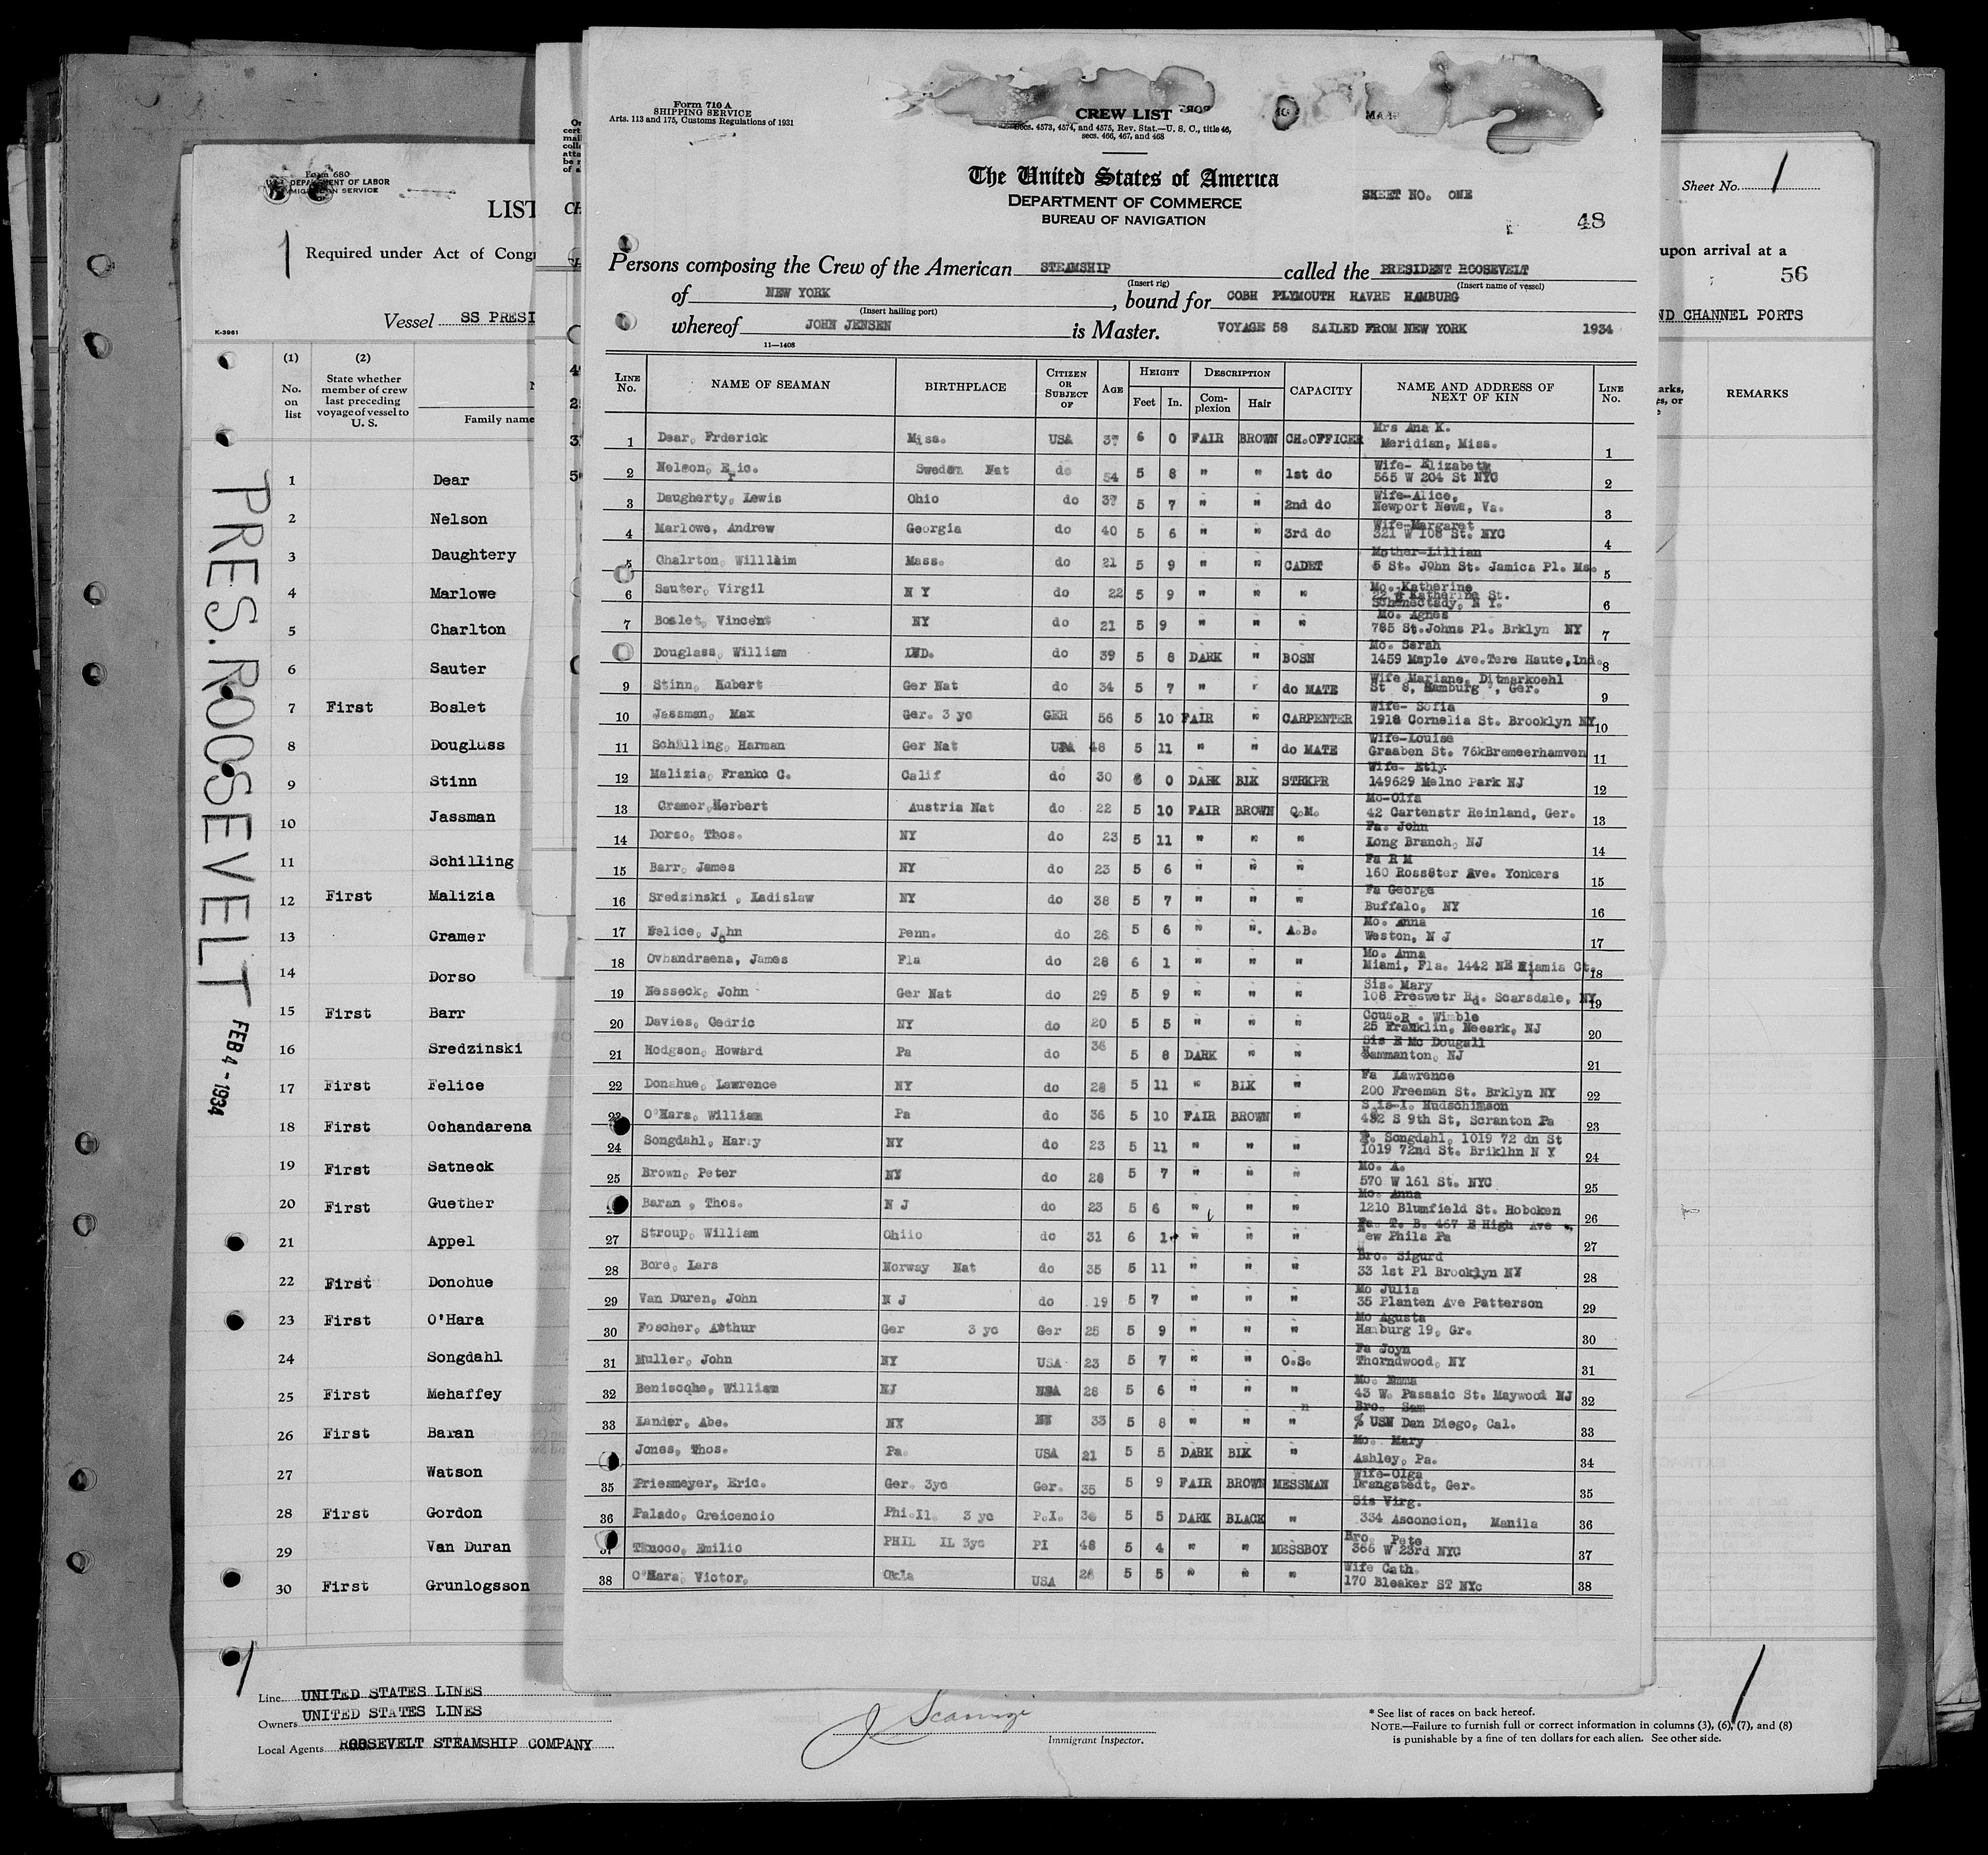 Form 680
DEPARTMENT OF LABOR
IMMIGRATION SERVICE
LIST
1
Required under Act of Cong
Vessel SS PRESI
K-3961
(1) (2)
No. on list
State whether member of crew last preceding voyage of vessel to U. S.
Family name
1 Dear
2 Nelson
3 Daughtery
4 Marlowe
5 Charlton
6 Sauter
7 First Boslet
8 Douglass
9 Stinn
10 Jassman
11 Schilling
12 First Malizia
13 Cramer
14 Dorso
15 First Barr
16 Sredzinski
17 First Felice
18 First Ochandarena
19 First Satneck
20 First Guether
21 Appel
22 First Donohue
23 First O'Hara
24 Songdahl
25 First Mehaffey
26 First Baran
27 Watson
28 First Gordon
29 Van Duran
30 First Grunlogsson
PRES. ROOSEVELT FEB 4 - 1934
Line UNITED STATES LINES
Owners UNITED STATES LINES
Local Agents ROOSEVELT STEAMSHIP COMPANY
Immigrant Inspector.
* See list of races on back hereof.
NOTE.—Failure to furnish full or correct information in columns (3), (6), (7), and (8)
is punishable by a fine of ten dollars for each alien. See other side.
Sheet No. 1
upon arrival at a
56
ND CHANNEL PORTS
REMARKS
Form 710 A
SHIPPING SERVICE
Arts. 113 and 175, Customs Regulations of 1931
CREW LIST
Secs. 4573, 4574, and 4575, Rev. Stat.—U. S. C., title 46,
secs. 466, 467, and 468
The United States of America
DEPARTMENT OF COMMERCE
BUREAU OF NAVIGATION
SHEET NO. ONE
48
Persons composing the Crew of the American STEAMSHIP called the PRESIDENT ROOSEVELT
(Insert rig) (Insert name of vessel)
of NEW YORK, bound for COBH PLYMOUTH HAVRE HAMBURG
(Insert hailing port)
whereof JOHN JENSEN is Master. VOYAGE 58 SAILED FROM NEW YORK 1934
11—1408
LINE No. NAME OF SEAMAN BIRTHPLACE CITIZEN OR SUBJECT OF AGE HEIGHT Feet In. DESCRIPTION Complexion Hair CAPACITY NAME AND ADDRESS OF NEXT OF KIN LINE No.
1 Dear, Frderick Miss. USA 37 6 0 FAIR BROWN CH.OFFICER Mrs Ana K. Meridian, Miss. 1
2 Nelson, Eric. Sweden Nat do 54 5 8 " " 1st do Wife- Elizabeth 565 W 204 St NYC 2
3 Daugherty, Lewis Ohio do 37 5 7 " " 2nd do Wife-Alice, Newport News, Va. 3
4 Marlowe, Andrew Georgia do 40 5 6 " " 3rd do Wife-Margaret 321 W 108 St. NYC 4
5 Chalrton, Willlaim Mass. do 21 5 9 " " CADET Mother-Lillian 5 St. John St. Jamica Pl. Ms. 5
6 Sauter, Virgil N Y do 22 5 9 " " " Mo. Katherine 22 Katherine St. Schenectady, N Y. 6
7 Boslet, Vincent NY do 21 5 9 " " " Mo. Agnes 785 St.Johns Pl. Brklyn NY 7
Douglass, William IND. do 39 5 8 DARK " BOSN Mo. Sarah 1459 Maple Ave.Tere Haute,Ind. 8
9 Stinn, Hubert Ger Nat do 34 5 7 " " do MATE Wife Mariane, Ditmarkoehl St 8, Hamburg , Ger. 9
10 Jassman, Max Ger. 3 yc GER 56 5 10 FAIR " CARPENTER Wife- Sofia 1918 Cornelia St. Brooklyn NY 10
11 Schilling, Harman Ger Nat USA 48 5 11 " " do MATE Wife-Louise Graaben St. 76kBremeerhamven 11
12 Malizia, Franko C. Calif do 30 6 0 DARK BIK STRKPR Wife- Etly 149629 Melno Park NJ 12
13 Cramer,Herbert Austria Nat do 22 5 10 FAIR BROWN Q.M. Mo-Olfa 42 Cartenstr Reinland, Ger. 13
14 Dorso, Thos. NY do 23 5 11 " " " Fa. John Long Branch, NJ 14
15 Barr, James NY do 23 5 6 " " " Fa R M 160 Ross8ter Ave. Yonkers 15
16 Sredzinski , Ladislaw NY do 38 5 7 " " " Fa George Buffalo, NY 16
17 Felice, John Penn. do 26 5 6 " ". A.B. Mo. Anna Weston, N J 17
18 Ovhandraena, James Fla do 28 6 1 " " " Mo. Anna Miami, Fla. 1442 NE Miamia Ct. 18
19 Nesseck, John Ger Nat do 29 5 9 " " " Sis. Mary 108 Preswetr Rd. Scarsdale, NY 19
20 Davies, Cedric NY do 20 5 5 " " " Cous.R . Wimble 25 Franklin, Neeark, NJ 20
21 Hodgson, Howard Pa do 36 5 8 DARK " " Sis E Mc Dougall Hammanton, NJ 21
22 Donahue, Lawrence NY do 28 5 11 " BIK " Fa Lawrence 200 Freeman St. Brklyn NY 22
23 O'Hara, William Pa do 36 5 10 FAIR BROWN " 492 S 9th St, Scranton Pa 23
24 Songdahl, Harry NY do 23 5 11 " " " F. Songdahl, 1019 72 dn St 1019 72nd St. Briklhn N Y 24
25 Brown, Peter NY do 28 5 7 " " " Mo. A. 570 W 161 St. NYC 25
Baran , Thos. N J do 23 5 6 " " " Mo. Anna 1210 Blumfield St. Hoboken 26
27 Stroup, William Ohiio do 31 6 1 " " " Fa. T. B. 467 E High Ave , New Phila Pa 27
28 Bore, Lars Norway Nat do 35 5 11 " " " Bro. Sigurd 33 1st Pl Brooklyn NY 28
29 Van Duren, John N J do 19 5 7 " " " Mo Julia 35 Planten Ave Patterson 29
30 Foscher, Arthur Ger 3 yc Ger 25 5 9 " " " Mo Agusta Hamburg 19, Gr. 30
31 Muller, John NY USA 23 5 7 " " O.S. Fa Joyn Thorndwood, NY 31
32 Beniscohe, William NJ USA 28 5 6 " " " Mo. Emma 43 W. Passaic St. Maywood NJ 32
33 Lander, Abe. NY 33 5 8 " " " Bro. Sam % USN Dan Diego, Cal. 33
Jones, Thos. Pa. USA 21 5 5 DARK BIK " Mo. Mary Ashley, Pa. 34
35 Priesmeyer, Eric. Ger. 3yc Ger. 35 5 9 FAIR BROWN MESSMAN Wife-Olga Drangstedt, Ger. 35
36 Palado, Creicencio Phi.Il. 3 yc P.I. 36 5 5 DARK BLACK " Sis Virg. 334 Asconcion, Manila 36
37 Tinoco, Emilio PHIL IL 3yc PI 48 5 4 " " MESSBOY Bro. Pete 366 W 23rd NYC 37
38 O'Hara, Victor, Okla USA 28 5 5 " " " Wife Cath. 170 Bleaker ST NYc 38